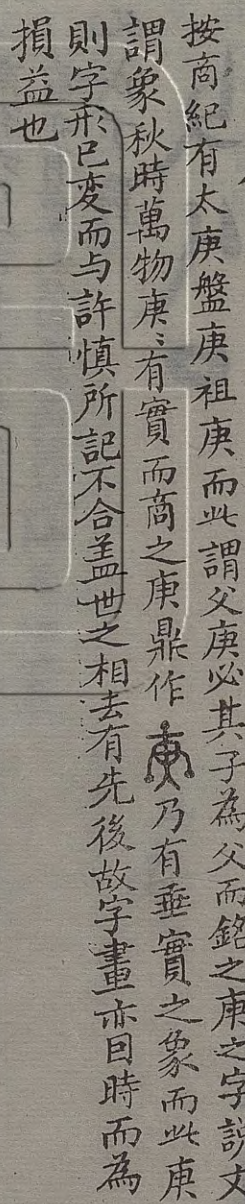 按商紀有太庚盤庚祖庚而此謂父庚必其子為父而銘之庚之字説文
謂象秋時萬物庚〻有實而商之庚鼎作乃有垂實之象而此庚
則字形已変而与許慎所記不合盖世之相去有先後故字畫亦因時而為
損益也